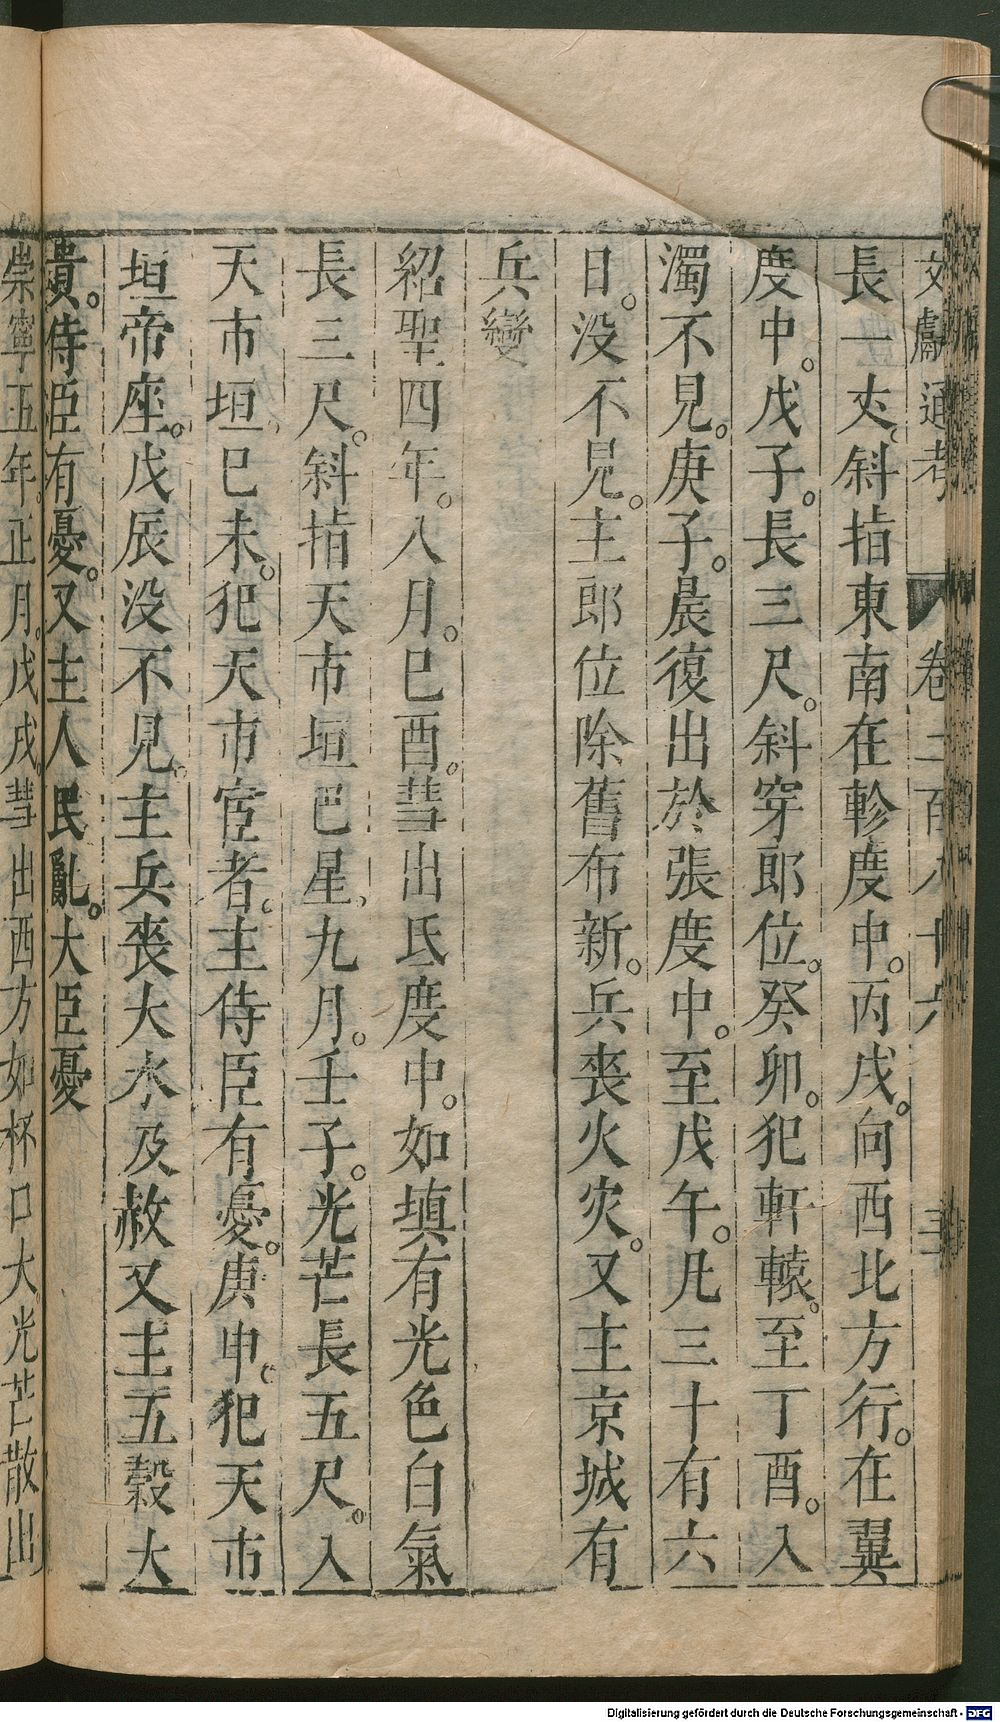 文獻通考 卷二百八十六
長一丈斜指東南在軫度中。丙戌。向西北方行。在翼
度中。戊子。長三尺。斜穿郎位。癸卯。犯軒轅。至丁酉。入
濁不見。庚子。晨復出於張度中。至戊午。凡三十有六
日。没不見。主郎位除舊布新。兵喪火灾。又主京城有
兵變
紹聖四年。八月。巳酉。彗出氐度中。如填有光色白氣
長三尺。斜指天市垣巴星。九月。壬子。光芒長五尺。入
天市垣。巳未。犯天市宦者。主侍臣有憂。庚申。犯天市
垣帝座。戊辰没不見。主兵喪大水及赦又主五穀大
貴。侍臣有憂。又主人民亂。大臣憂
崇寧五年。正月。戊戌。彗出西方如杯口大光芒散出
Digitalisierung gefördert durch die Deutsche Forschungsgemeinschaft - DFG